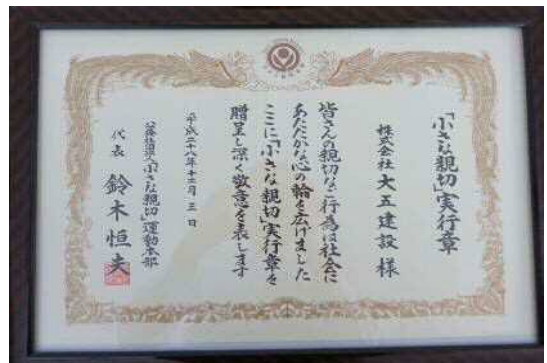 「小さな親切」実行章
株式会社 大五建設 様
皆さんの親切なご行為は社会に
あたたかな心の輪を広げました
ここに「小さな親切」実行章を
贈呈し深く敬意を表します
平成二十八年十二月三日
公益社団法人「小さな親切」運動本部
代表 鈴木恒夫